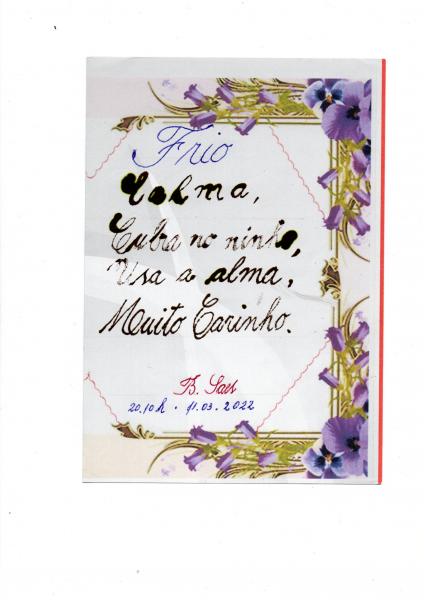 Frio
Calma,
Cubra no ninho,
Usa a alma,
Muito Carinho.
B. Saes
20.10h. 11.03.2022